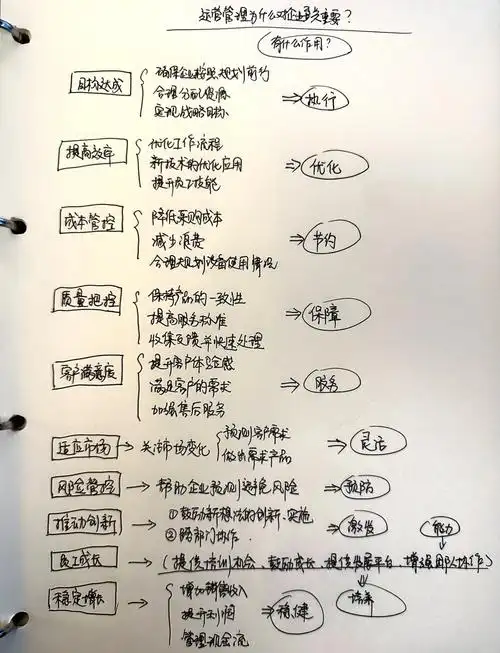 运营管理为什么对企业至关重要?
有什么作用?
目标达成
确保企业按照规划前行
合理分配资源
实现战略目标
⇒ 执行
提高效率
优化工作流程
新技术的优化应用
提升员工技能
⇒ 优化
成本管控
降低采购成本
减少浪费
合理规划设备使用情况
⇒ 节约
质量把控
保持产品的一致性
提高服务标准
收集反馈并快速处理
⇒ 保障
客户满意度
提升客户体验感
满足客户的需求
加强售后服务
⇒ 服务
适应市场 → 关注市场变化
预测客户需求
做出需求产品
⇒ 灵活
风险管控 → 帮助企业预测避免风险 ⇒ 预防
推动创新 → ①鼓励新想法的创新、实施
②跨部门协作.
⇒ 激发
能力
员工成长 → (提供培训机会、鼓励成长、提供发展平台、增强团队协作)
培养
稳定增长 →
增加销售收入
提升利润
管理现金流
⇒ 稳健